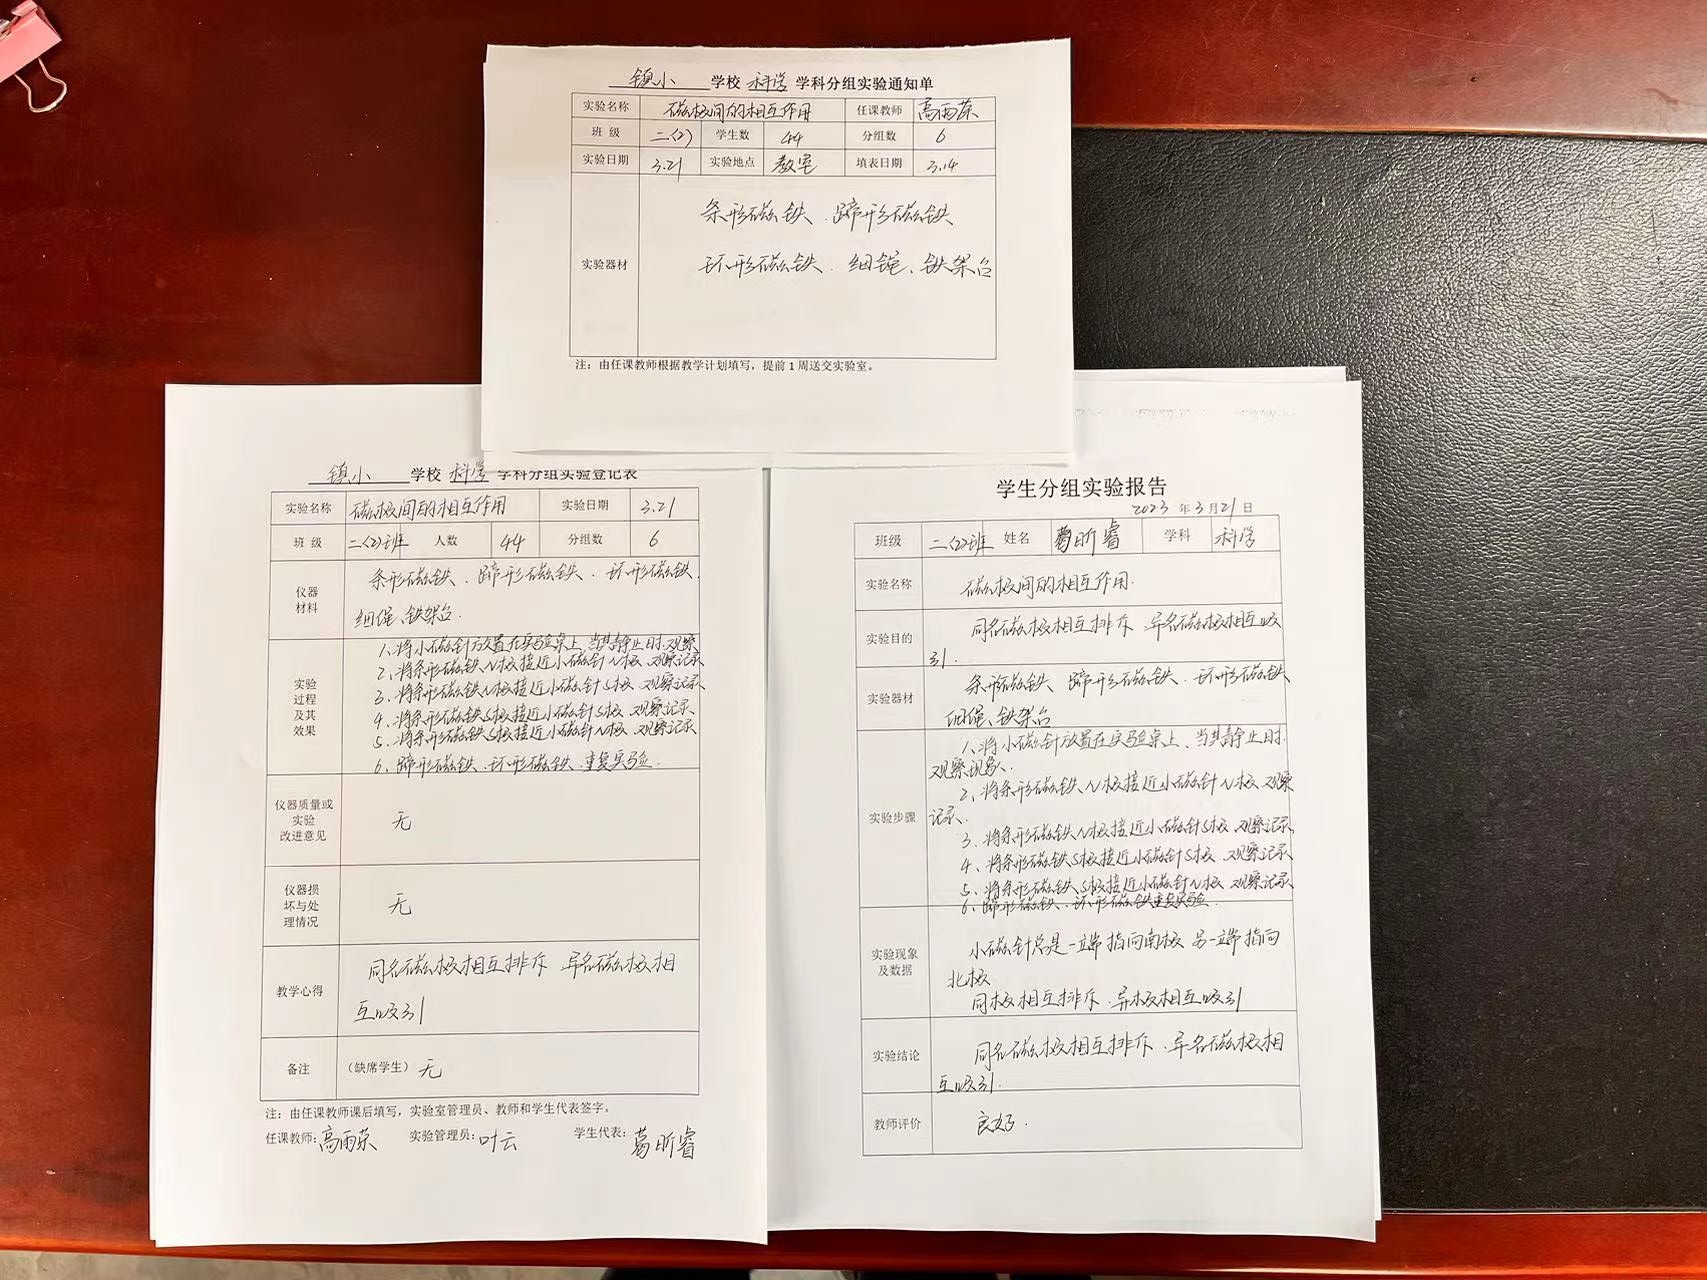 镇小 学校 科学 学科分组实验通知单
实验名称 磁极间的相互作用 任课教师 高雨荣
班 级 二(2) 学生数 44 分组数 6
实验日期 3.21 实验地点 教室 填表日期 3.14
条形磁铁、蹄形磁铁
实验器材 环形磁铁、细绳、铁架台
注：由任课教师根据教学计划填写，提前1周送交实验室。
镇小 学校 科学 学科分组实验登记表
实验名称 磁极间的相互作用 实验日期 3.21
班 级 二(2)班 人数 44 分组数 6
仪器
材料
条形磁铁、蹄形磁铁、环形磁铁、
细绳、铁架台.
实验
过程
及其
效果
1、将小磁针放置在实验桌上，当其静止时.观察
2、将条形磁铁N极接近小磁针N极、观察记录
3、将条形磁铁N极接近小磁针S极、观察记录
4、将条形磁铁S极接近小磁针S极、观察记录
5、将条形磁铁S极接近小磁针N极、观察记录
6、蹄形磁铁、环形磁铁、重复实验.
仪器质量或
实验
改进意见
无
仪器损
坏与处
理情况
无
教学心得
同名磁极相互排斥 异名磁极相
互吸引
备注 （缺席学生）无
注：由任课教师课后填写，实验室管理员、教师和学生代表签字。
任课教师：高雨荣 实验管理员：叶云 学生代表：葛昕睿
学生分组实验报告
2023 年 3 月 21 日
班级 二(2)班 姓名 葛昕睿 学科 科学
实验名称 磁极间的相互作用.
实验目的 同名磁极相互排斥、异名磁极相互吸
引.
实验器材 条形磁铁、蹄形磁铁、环形磁铁
细绳、铁架台
实验步骤
1、将小磁针放置在实验桌上、当其静止时.
观察现象.
2、将条形磁铁N极接近小磁针N极、观察
记录、
3、将条形磁铁N极接近小磁针S极、观察记录
4、将条形磁铁S极接近小磁针S极、观察记录
5、将条形磁铁S极接近小磁针N极、观察记录
6、蹄形磁铁、环形磁铁重复实验.
实验现象
及数据
小磁针总是一端指向南极 另一端指向
北极
同极相互排斥、异极相互吸引
实验结论 同名磁极相互排斥、异名磁极相
互吸引.
教师评价 良好.